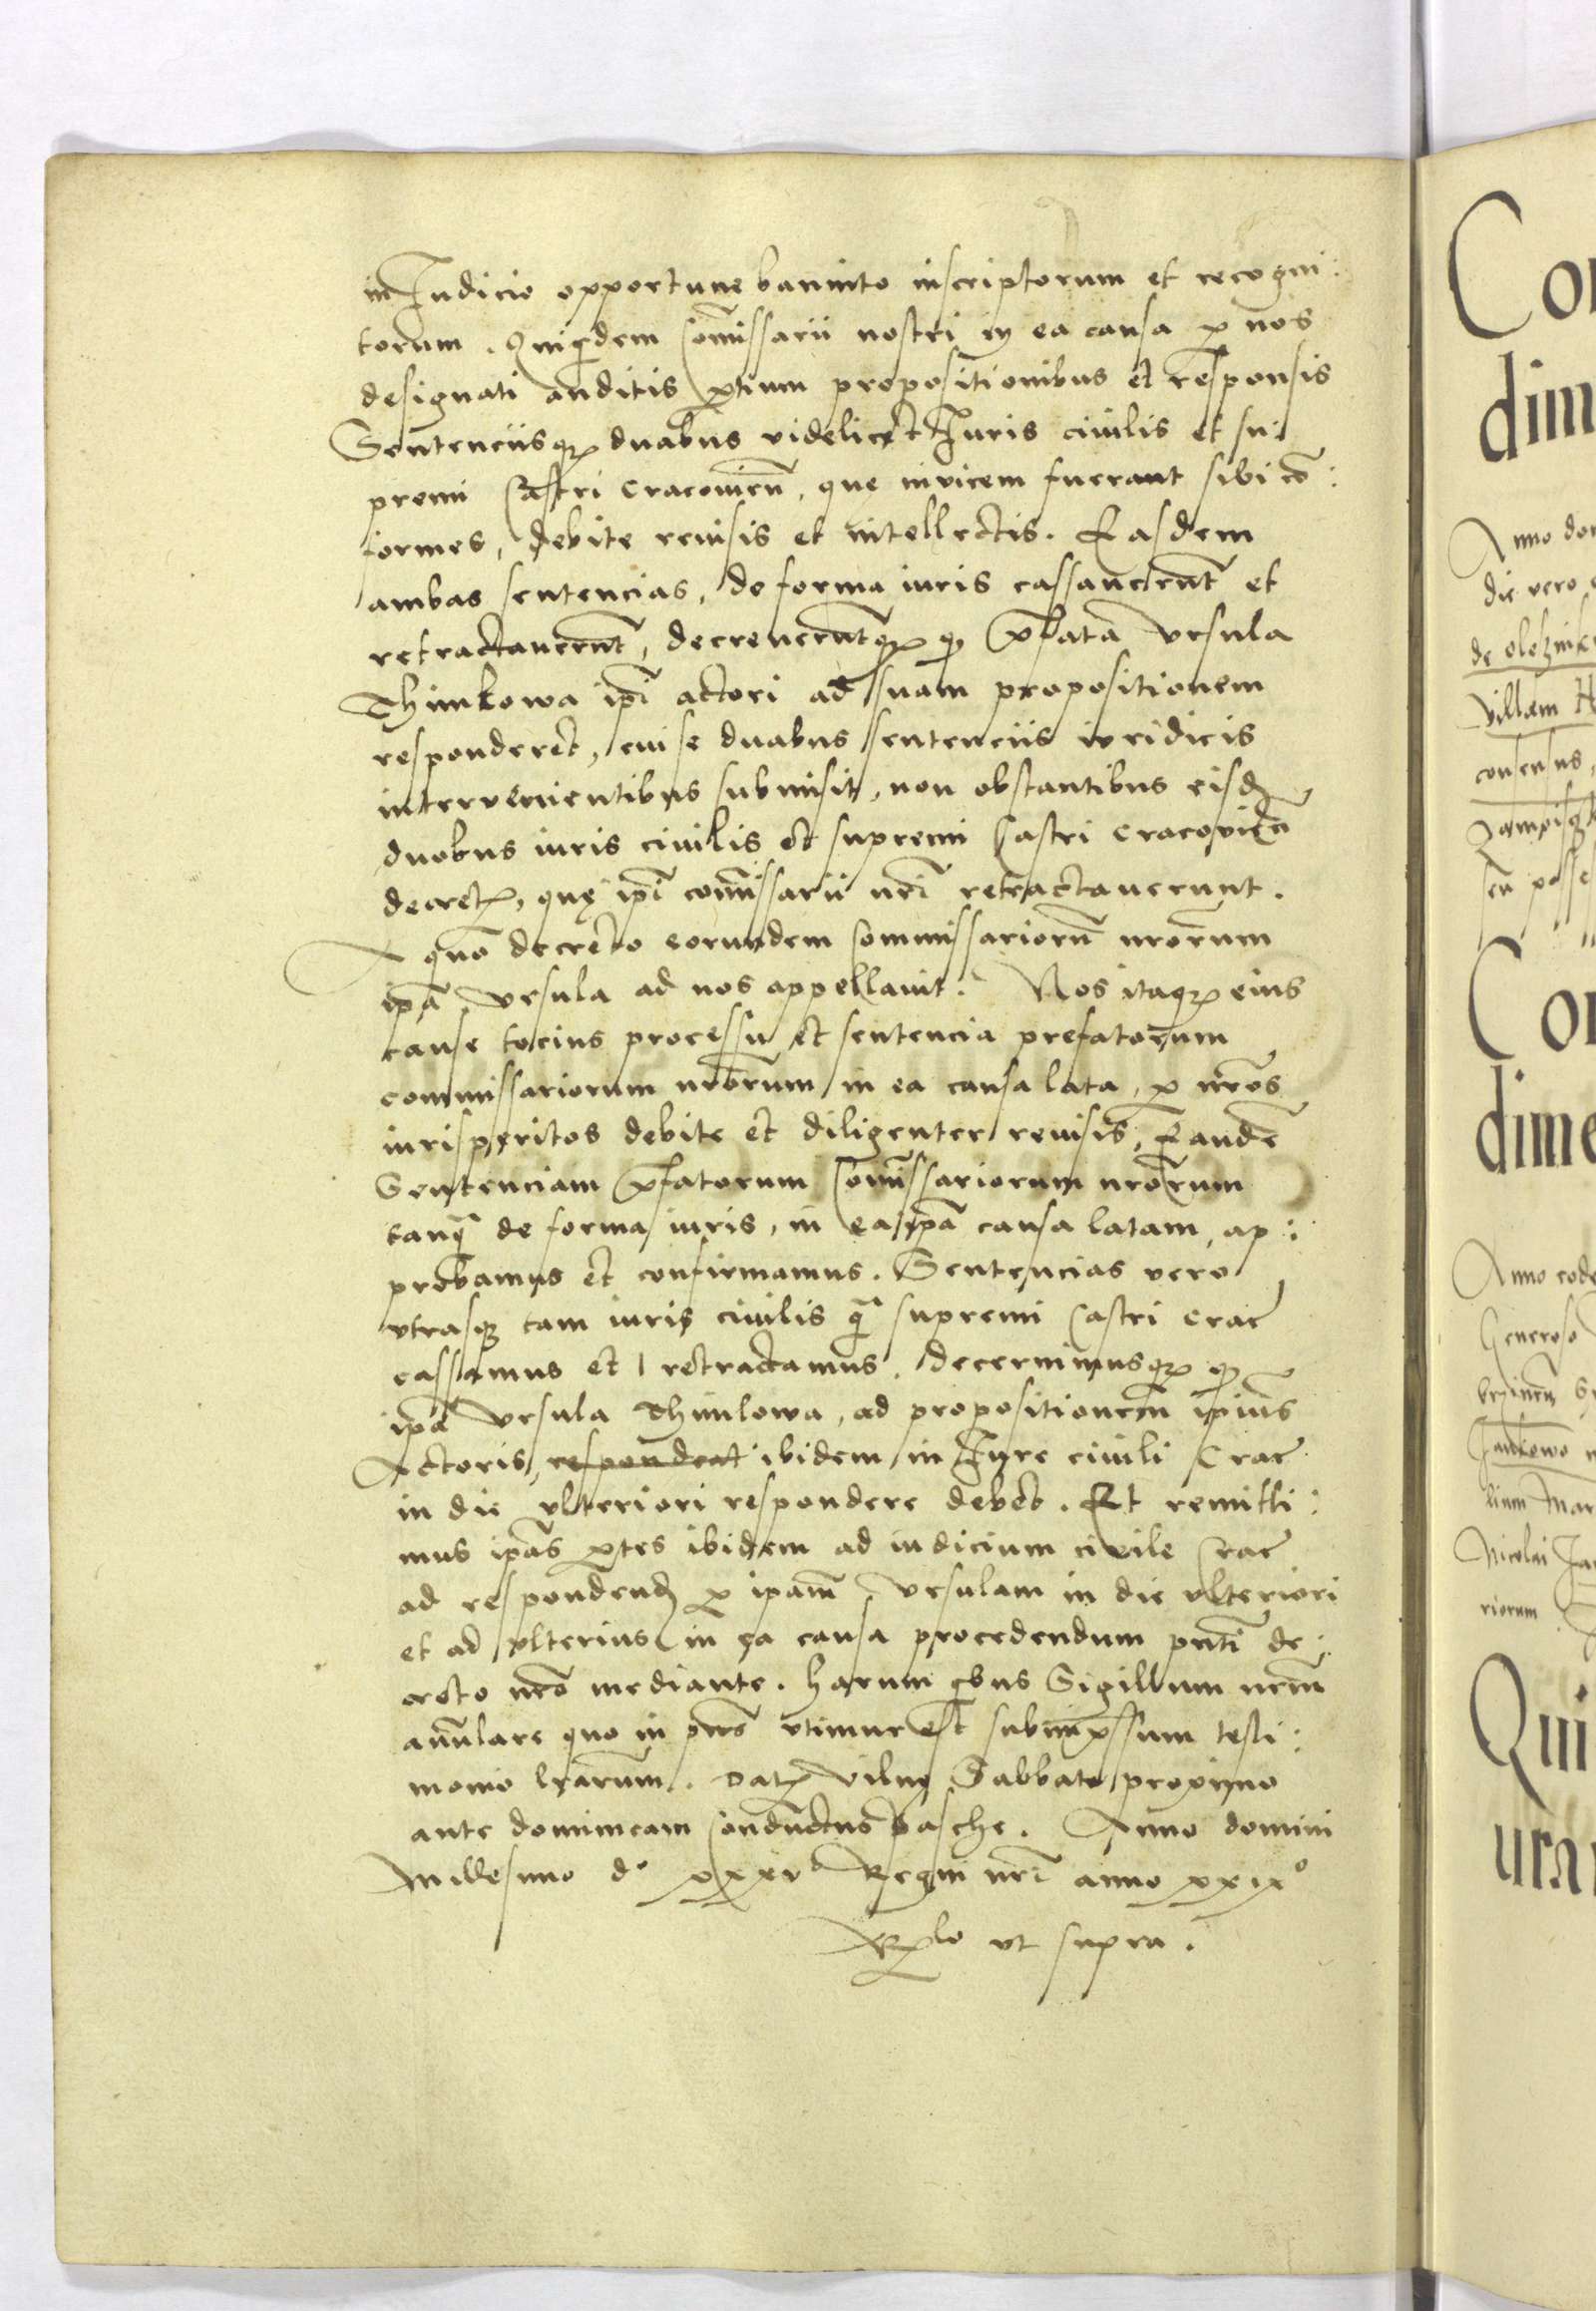 in Judicio opportune bannito inscriptorum et recogni:
torum. Quiqdem Comissarii nostri in ea causa p nos
designati auditis ptium propositionibus et responsis
Sentenciisq duabus videlicet Juris civilis et su:
premi Castri Cracovien, que invicem fuerant sibi co:
formes, debite revisis et intellectis. Easdem
ambas sentencias, de forma iuris cassaverunt et
retractaverunt, decreveruntq q pfata Ursula
Thimkowa ipi actori ad suam propositionem
responderet, cui se duabus sentenciis iuridicis
intervenientibus submisit, non obstantibus eisd
duobus iuris civilis et supremi Castri Cracovien
decret, que ipi comissarii nri retractaverunt.
A quo decreto eorundem Commissarioru nrorum
ipa Ursula ad nos appellavit. Nos itaq eius
cause tocius processu et sentencia prefatorum
commissariorum nrorum in ea causa lata, p nros
iurisperitos debite et diligenter revisis, Eande
Sentenciam pfatorum Comissariorum nrorum
tanq de forma iuris, in ea ipa causa latam, ap:
probamus et confirmamus. Sentencias vero
utrasq tam iuris civilis q supremi Castri Crac
cassamus et retractamus. decernimusq q
ipa Ursula Thimkowa, ad propositionem ipius
Actoris, respondeat ibidem in Jure civili Crac
in die ulteriori respondere debet. Et remitti:
mus ipas ptes ibidem ad iudicium civile Crac
ad respondend p ipam Ursulam in die ulteriori
et ad ulterius in ea causa procedendum pnti de:
creto nro mediante. harum qbus Sigillum nrm
anulare quo in pns utimur est subimpssum testi:
monio lrarum. Dat Vilne Sabbato proximo
ante dominicam Conductus pasche. Anno domini
Millesimo d° xxxv° Regni nri anno xxix°
Rlo ut supra.
Co
dim
Anno do
die vero
de olesznik
villam H
consensus,
seu posse
Co
dime
Anno eode
Generoso
Jankowo
Nicolai Ja
riorum
Qui
ura